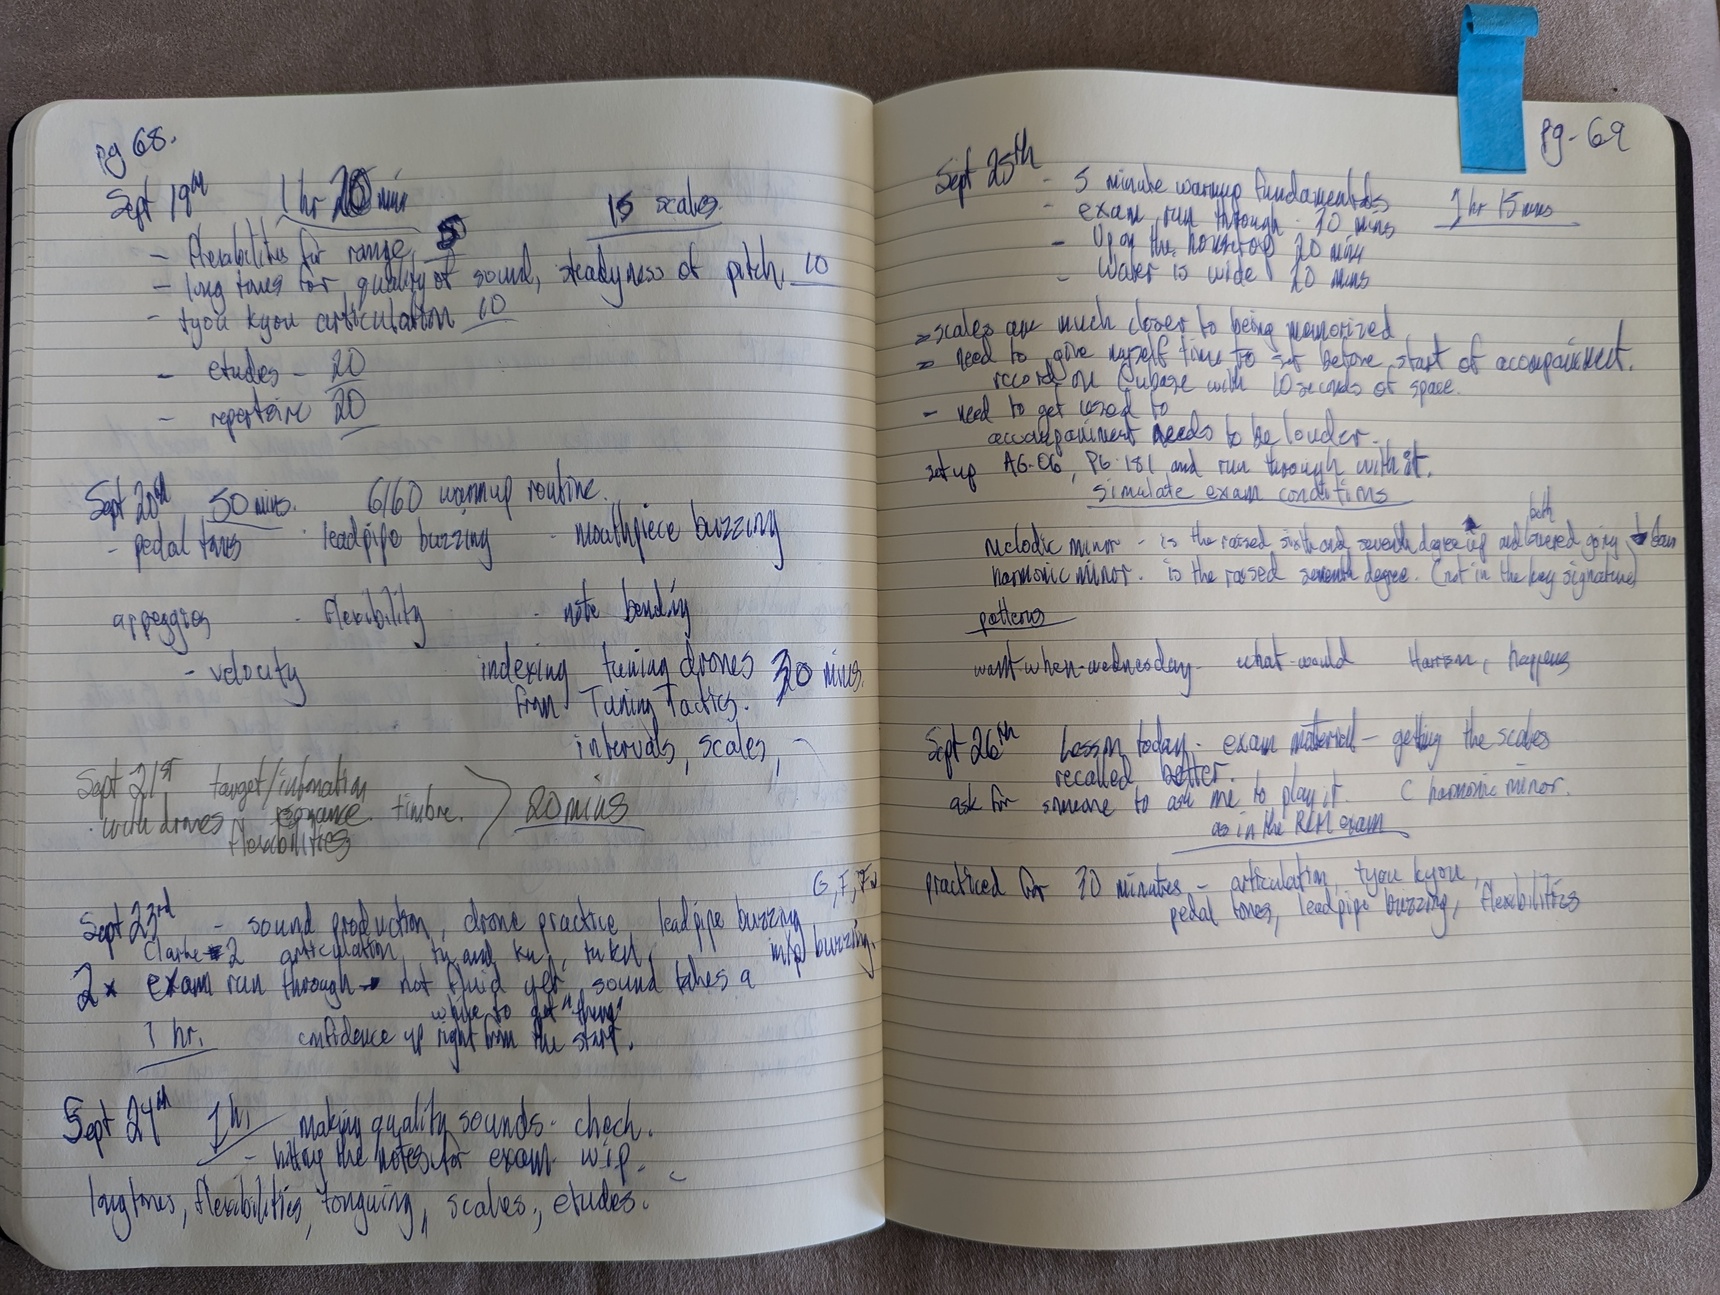 pg 68.
Sept 19th 1 hr 20 min 15 scales.
- flexibilities for range, 5
- long tones for quality of sound, steadyness of pitch, 10
- tyou kyou articulation 10
- etudes - 20
- repertoire 20
Sept 20th 50 mins. 6/60 warmup routine.
- pedal tones · leadpipe buzzing · mouthpiece buzzing
arpeggios · flexibility · note bending
- velocity indexing tuning drones 30 mins.
from Tuning Tactics.
intervals, scales,
Sept 21st target/intonation
· with drones resonance timbre. 20 mins
flexibilities
G, F,
Sept 23rd - sound production, drone practice, leadpipe buzzing
Clarke #2 articulation, tu and ku, tuku, m/p buzzing.
2x exam run through - not fluid yet, sound takes a
while to get "there"
1 hr. confidence up right from the start.
Sept 24th 1 hr, - making quality sounds - check.
- hitting the notes for exam - wip.
long tones, flexibilities, tonguing, scales, etudes.
pg - 69
Sept 25th - 5 minute warmup fundamentals 1 hr 15 mins
- exam run through - 30 mins
- Up on the housetop 20 mins
- Water is wide 20 mins
- scales are much closer to being memorized
- need to give myself time to set before start of accompaniment.
record on Cubase with 10 seconds of space.
- need to get used to
accompaniment needs to be louder.
set up AG-06, PG-181 and run through with it.
simulate exam conditions
both
Melodic minor - is the raised sixth and seventh degree up and lowered going down
harmonic minor. is the raised seventh degree. (not in the key signature)
patterns
want-when-wednesday- what would happens
Sept 26th Lesson today. exam material - getting the scales
recalled better.
ask for someone to ask me to play it. C harmonic minor.
as in the RCM exam
practiced for 30 minutes - articulation, tyou kyou,
pedal tones, leadpipe buzzing, flexibilities